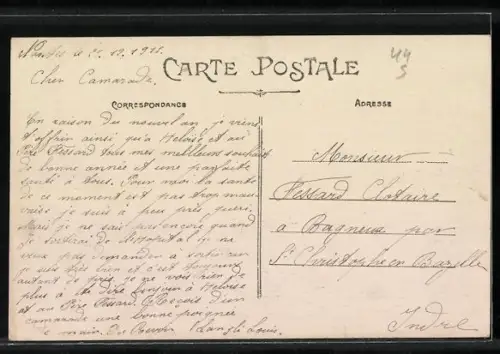 Nantes le
Cher Camarade.
44
S
CARTE POSTALE
CORRESPONDANCE
ADRESSE
En raison du nouvel an je viens
t'offrir ainsi qu'a Heloïse et au
Père Fessard tous mes meilleurs souhaits
de bonne année et une parfaite
santé à tous. Pour moi la santé
de ce moment est pas trop mauvaise
je suis à peu près guéri.
Mais je ne sais pas encore quand
je sortirai de l'hopital je ne
veux pas demander a sortir car
je suis très bien et c'est toujours
autant de pris je ne vois rien de
plus à te dire bonjour à Heloïse
et au Père Fessard. Reçois d'un
camarade une bonne poignee
de main. Louis.
Monsieur
Fessard Clotaire
à Bagneux par
St Christophe en Bazelle
Indre